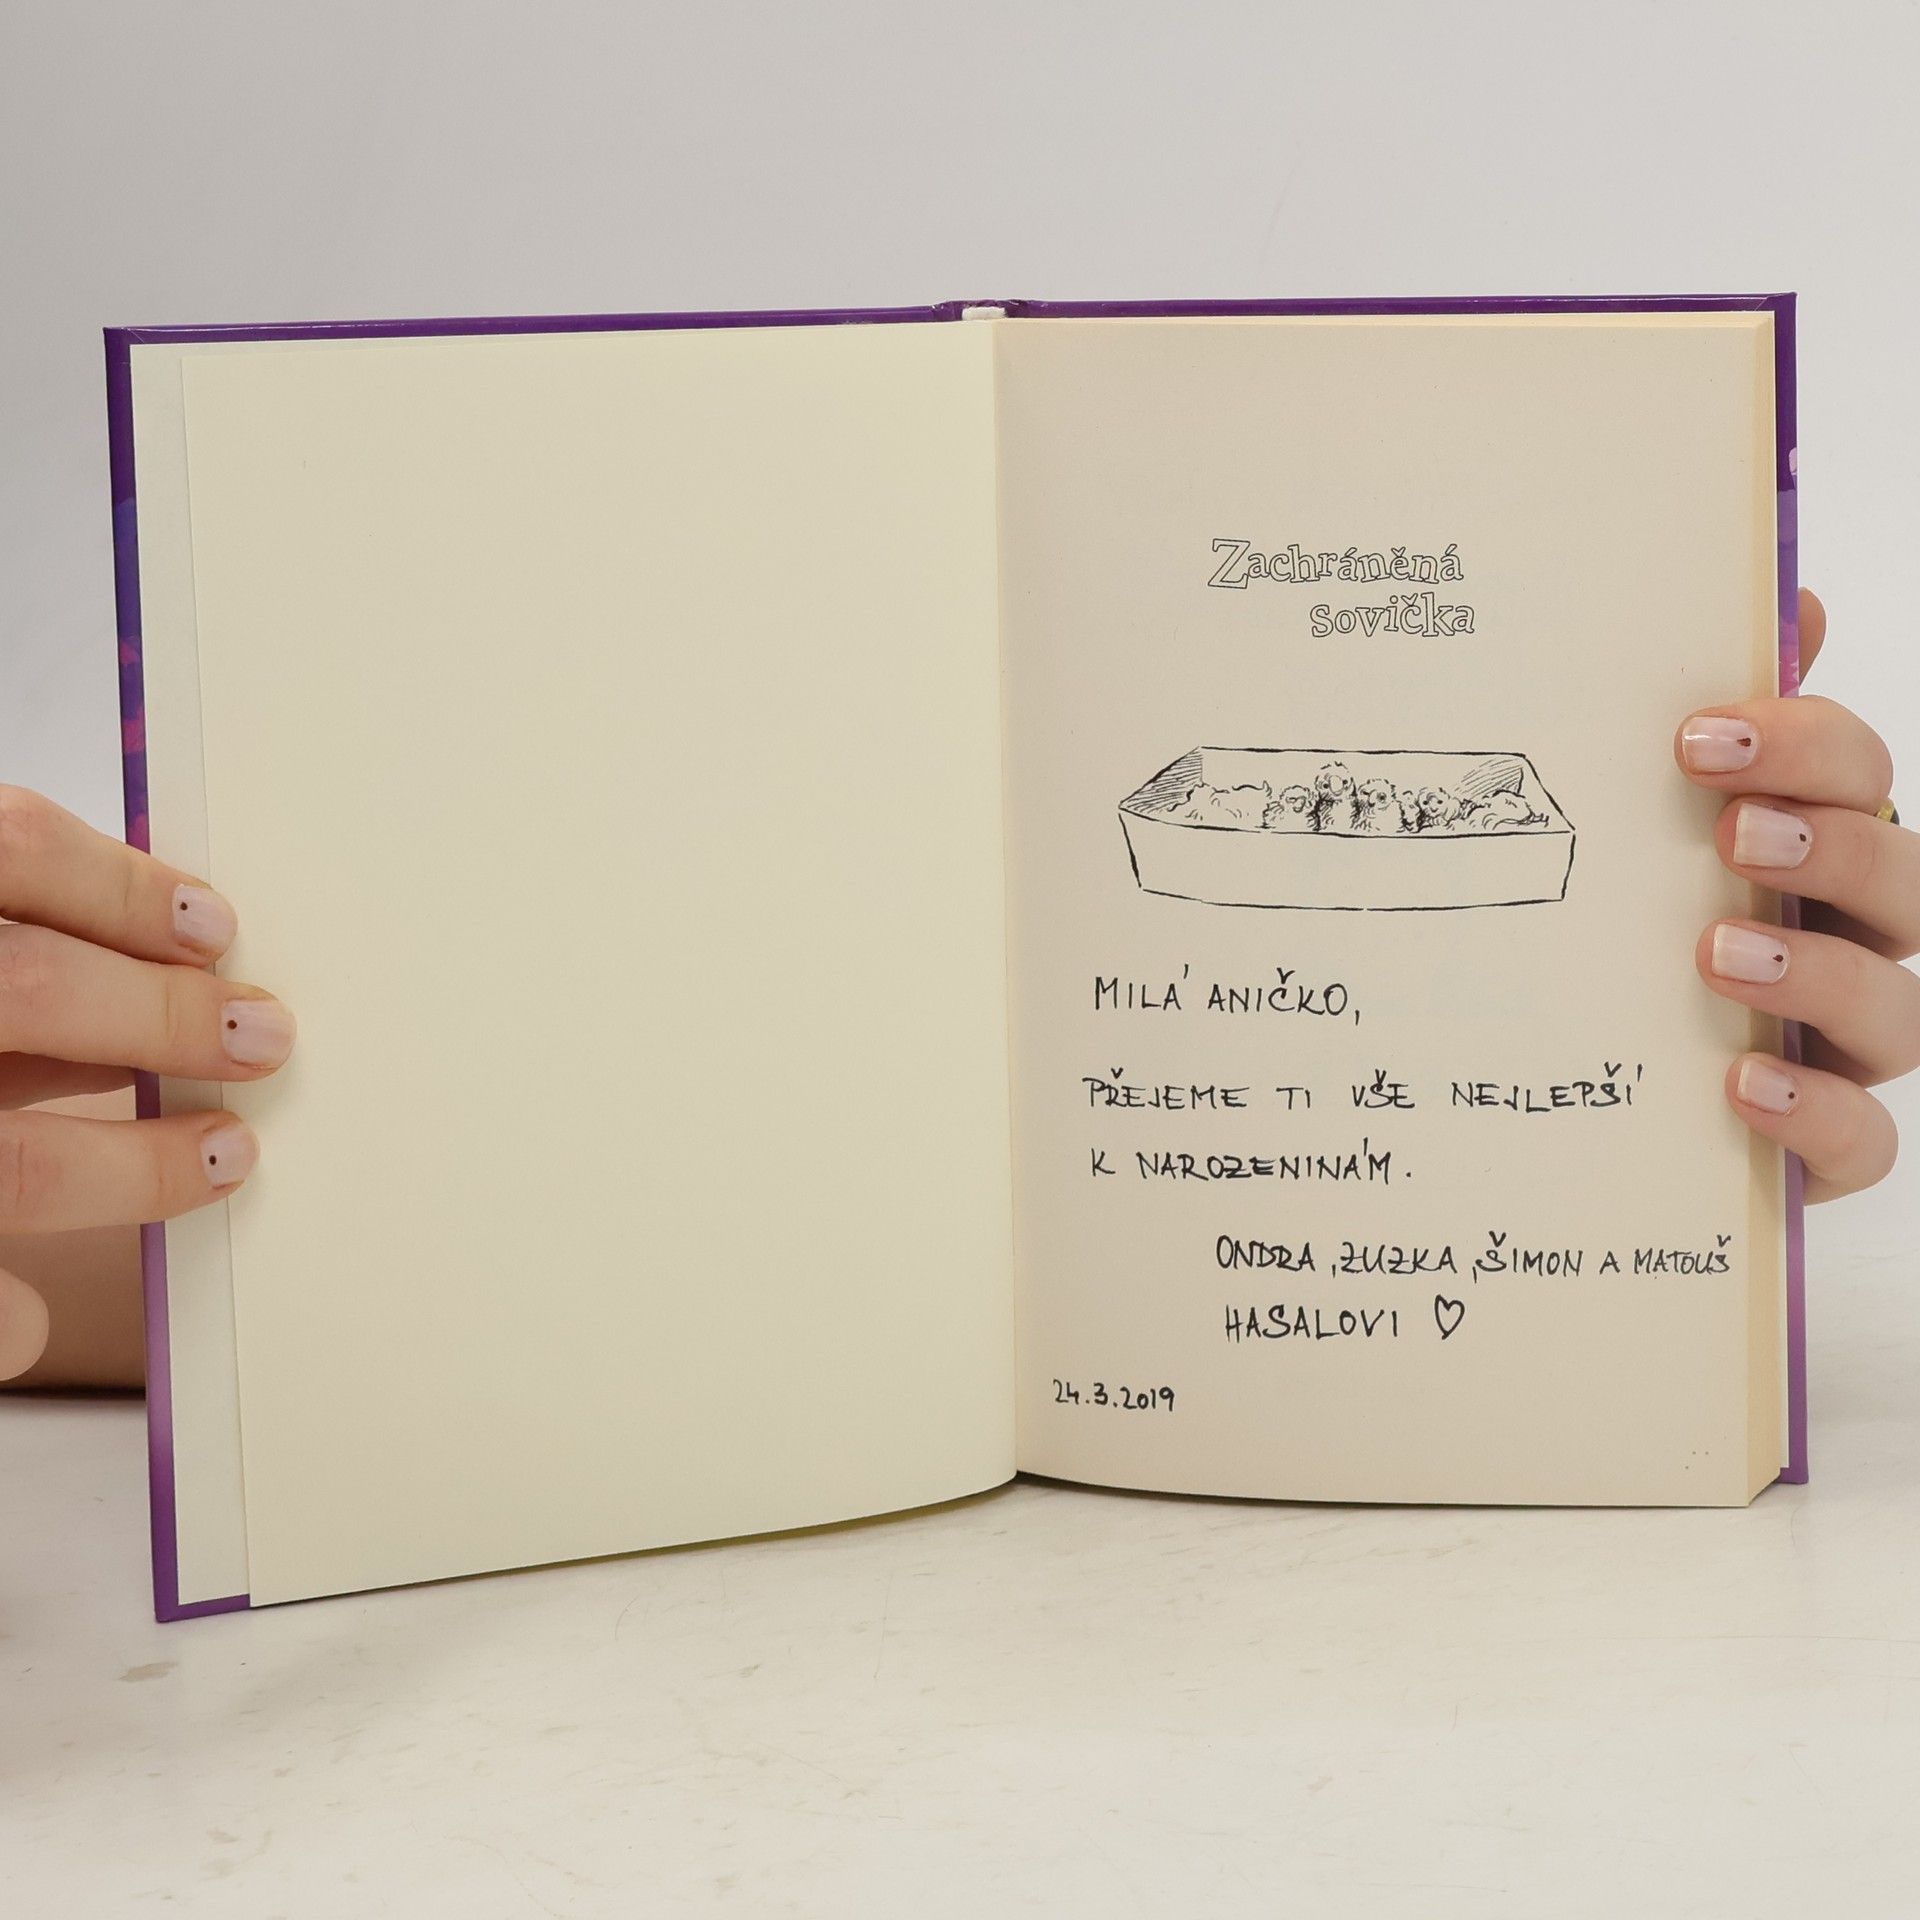 Zachráněná
sovička
MILÁ ANIČKO,
PŘEJEME TI VŠE NEJLEPŠÍ
K NAROZENINÁM.
ONDRA, ZUZKA, ŠIMON A MATOUŠ
HASALOVI ♡
24.3.2019